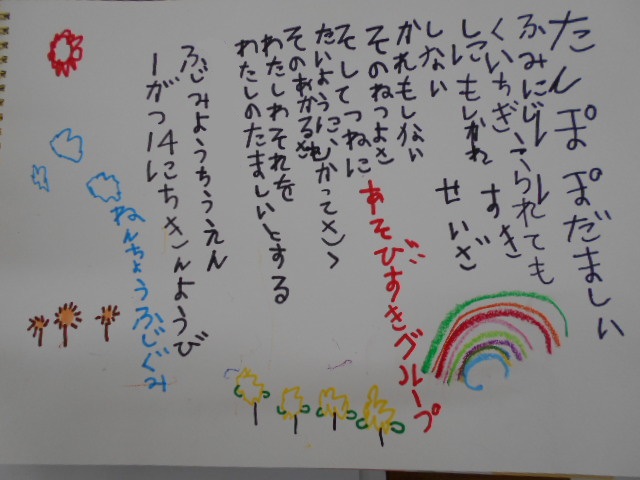 たんぽぽだましい
ふみにじられても
くいちぎられても
しにもしかれもしない
かれもしない
そのねつよさ
そしてつねに
たいようにむかってさく
そのあかるさ
わたしわそれを
わたしのたましいとする
すぎ
せいざ
あそびすきグループ
ふじみようちうえん
1がつ14にちきんようび
ねんちょうふじぐみ